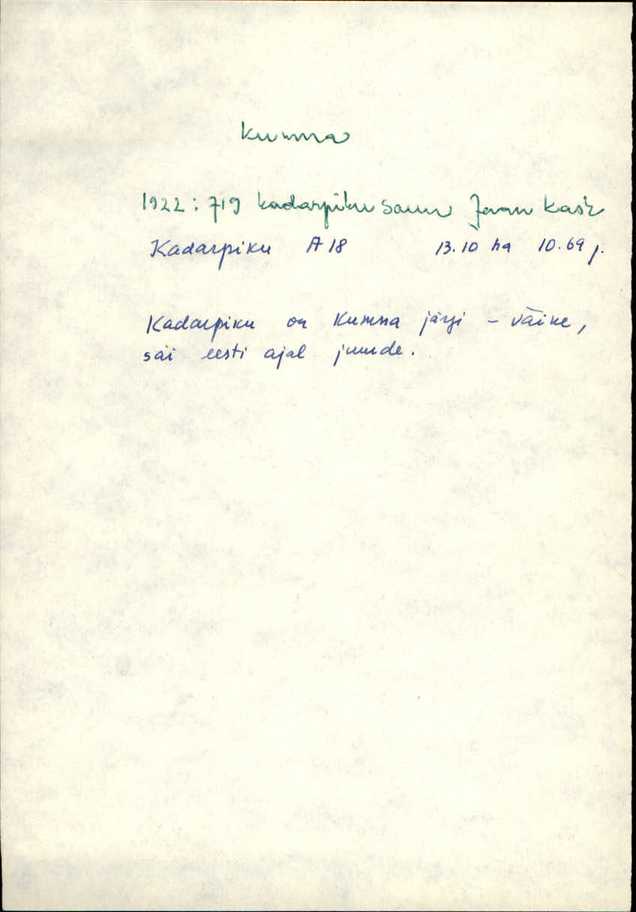 Kumna
1922: 719 Kadarpiku saun Jaan Kask
Kadarpiku A 18 13.10 ha 10.69 r.
Kadarpiku on Kumna järgi - väike,
sai eesti ajal juurde.